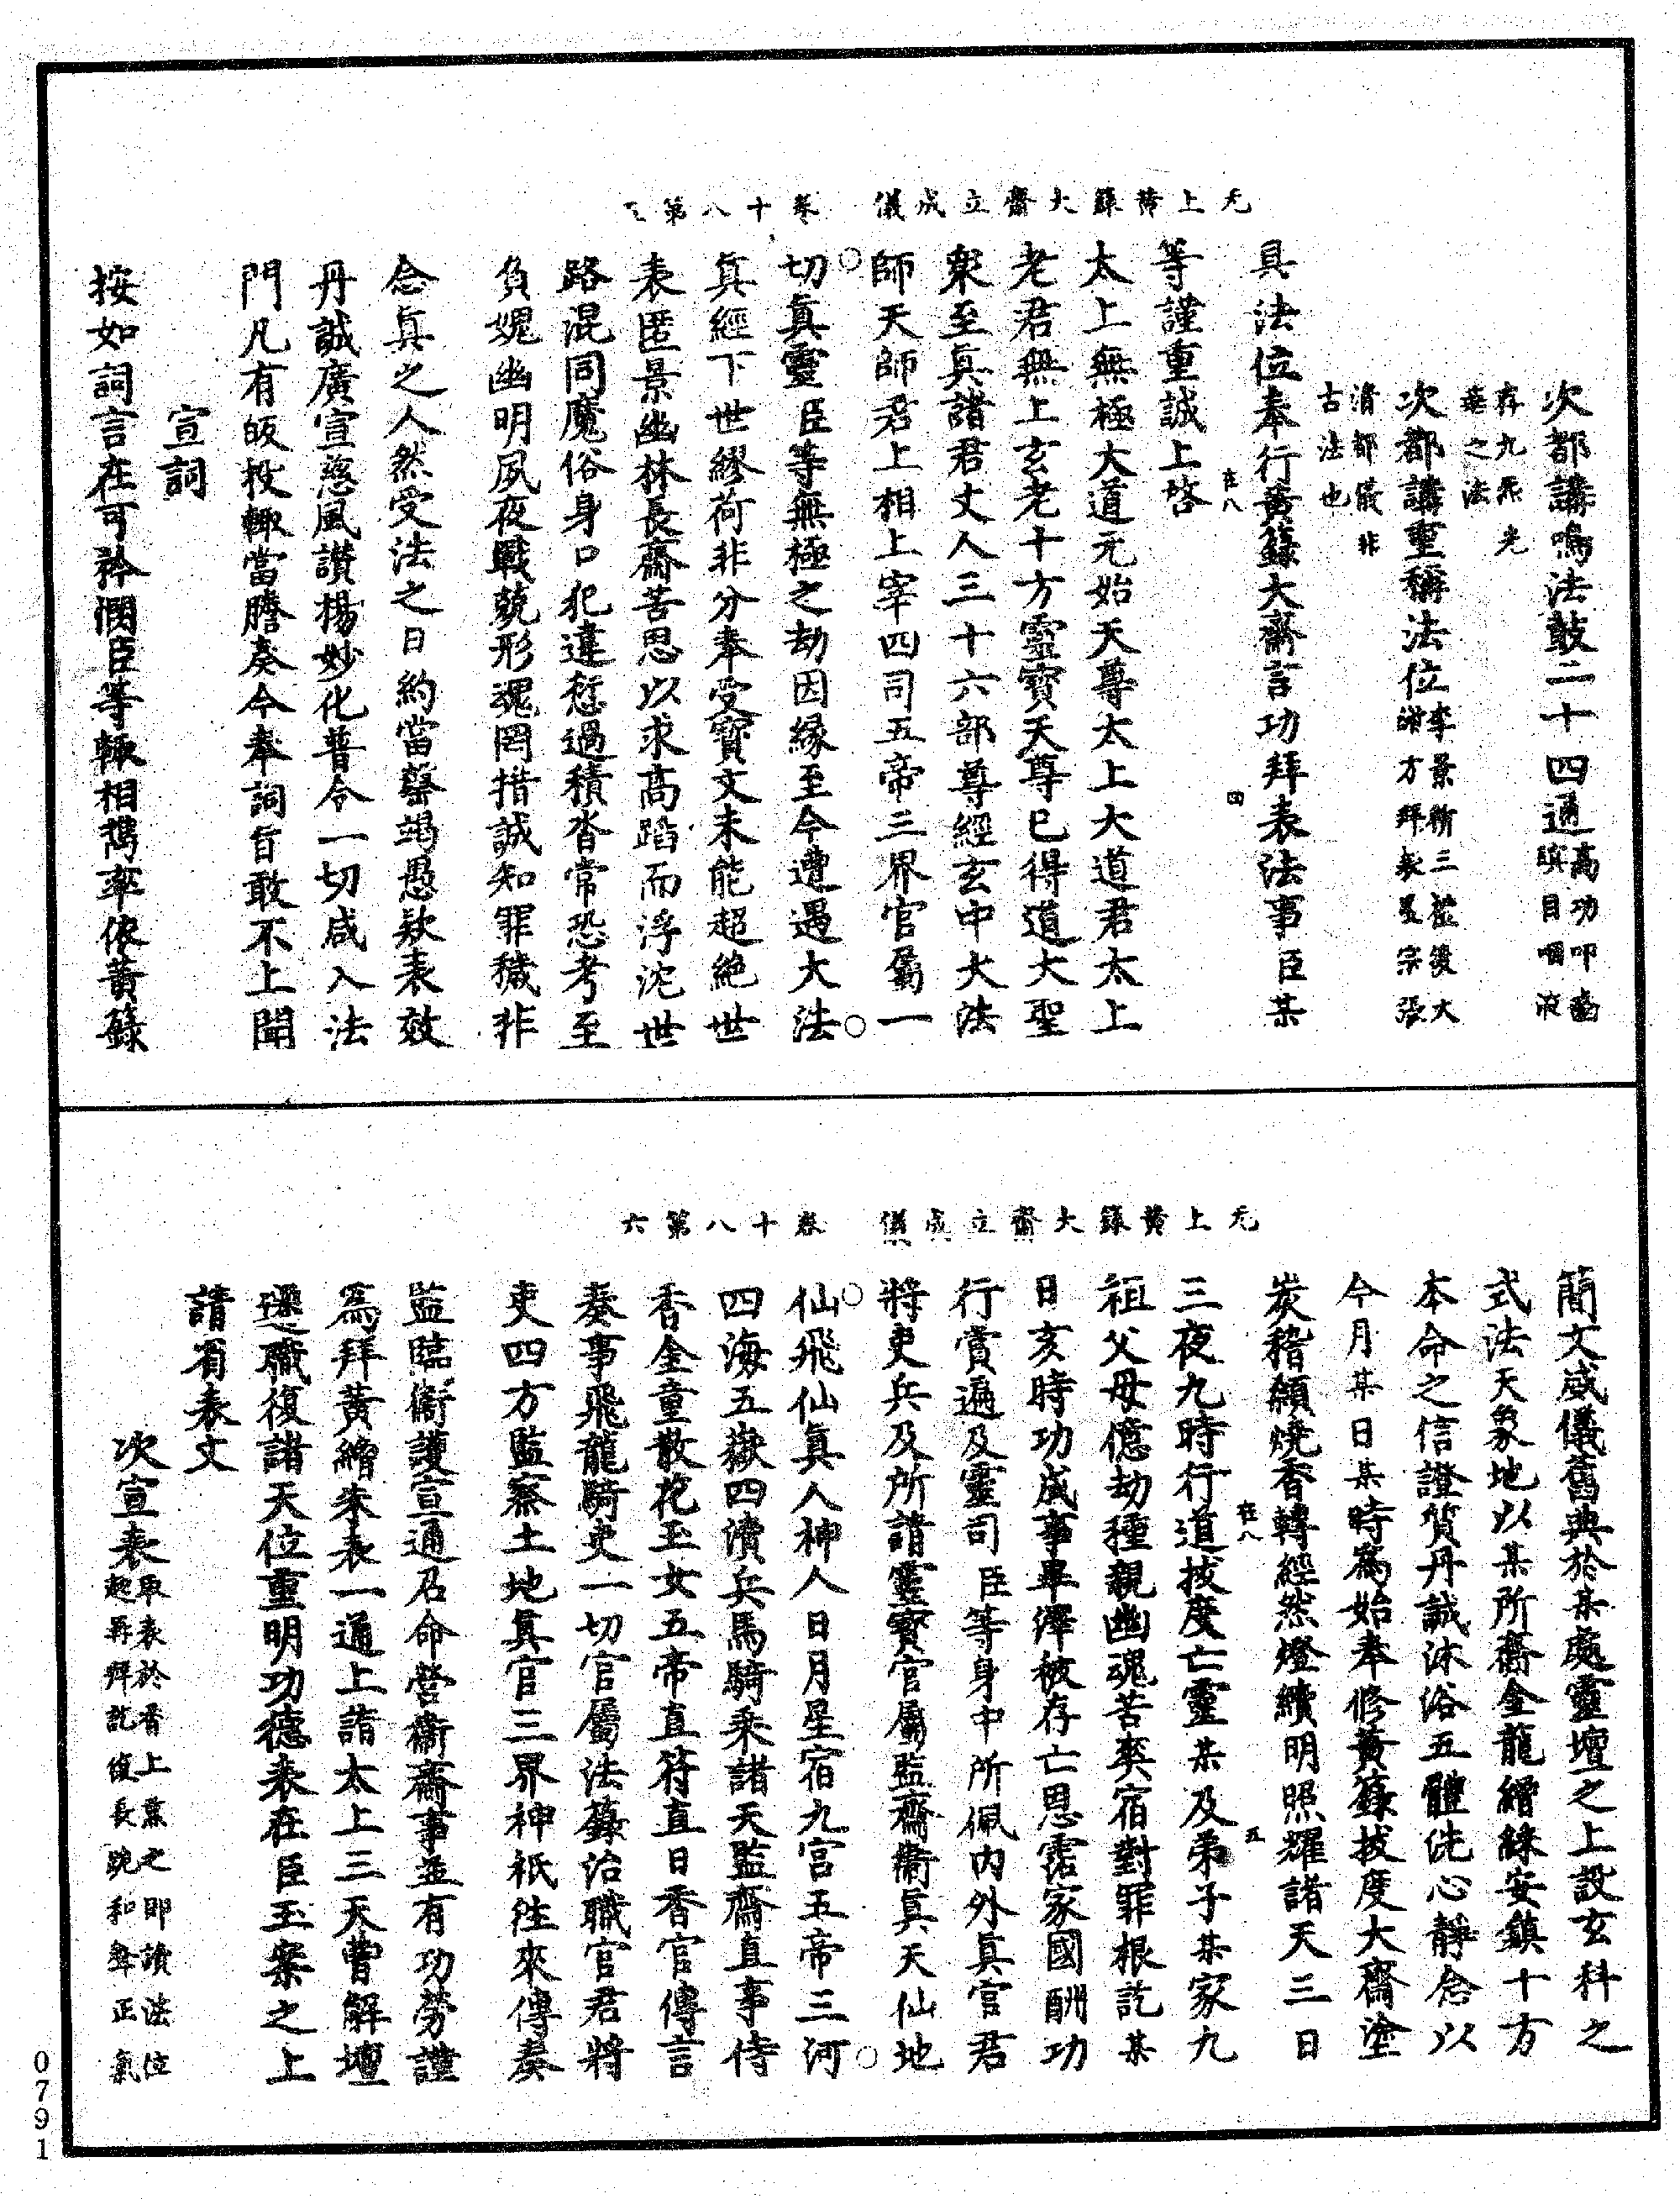 无上黃籙大齋立成儀　卷十八第
次都講鳴法鼓二十四通高功叩齒瞑目咽液
存九炁光之法
次都講重稱法位李景祈三籙後大謝方拜表是宗張
清都儀非古法也
具法位奉行黃籙大齋言功拜表法事臣某
等謹重誠上啓
太上無極大道元始天尊太上大道君太上
老君無上玄老十方靈寶天尊已得道大聖
衆至眞諸君丈人三十六部尊經玄中大法
師天師師君上相上宰四司五帝三界官屬一
切眞靈臣等無極之劫因緣至今遭遇大法
眞經下世繆荷非分奉受寶文未能超絶世
表匿景幽林長齋苦思以求高蹈而浮沈世
路混同魔俗身口犯違愆過積沓常恐考至
負媿幽明夙夜戰兢形魂罔措誠知罪穢非
念眞之人然受法之日約當罄竭愚欵表效
丹誠廣宣慈風讃楊妙化普令一切咸入法
門凡有皈投輙當謄奏今奉詞旨敢不上聞
宣詞
按如詞言在可矜憫臣等輙相攜率依黃籙
无上黃籙大齋立成儀　卷十八第六
簡文威儀舊典於某處靈壇之上設玄科之
式法天象地以某所齎金龍繒綵安鎮十方
本命之信證質丹誠沐浴五體洗心靜念以
今月某日某時爲始奉修黃籙拔度大齋塗
炭稽顙燒香轉經然燈續明照耀諸天三日
三夜九時行道拔度亡靈某及弟子某家九
祖父母億劫種親幽魂苦爽宿對罪根訖某
日亥時功成事畢澤被存亡恩霑家國酬功
行賞遍及靈司臣等身中所佩内外眞官君
將吏兵及所請靈寳官屬監齋衞眞天仙地
仙飛仙眞人神人日月星宿九宮五帝三河
四海五嶽四瀆兵馬騎乘諸天監齋直事侍
香金童散花玉女五帝直符直日香官傳言
奏事飛龍騎吏一切官屬法籙治職官君將
吏四方監察土地眞官三界神衹徃來傳奏
監臨衞護宣通召命營衞齋事並有功勞謹
爲拜黃繒朱表一通上詣太上三天曹解壇
遷職復諸天位重明功德表在臣玉案之上
請省表文
次宣表取表於香上薰之即讀法位起再拜訖復長跪和聲正氣
0791